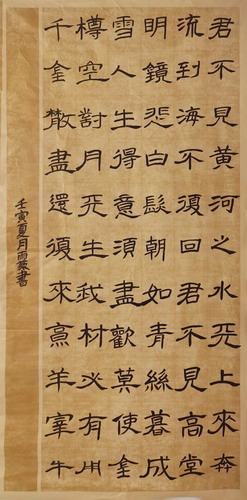 君不見黃河之水天上來奔
流到海不復回君不見高堂
明鏡悲白髮朝如青絲暮成
雪人生得意須盡歡莫使金
樽空對月天生我材必有用
千金散盡還復來烹羊宰牛
壬寅夏月雨書